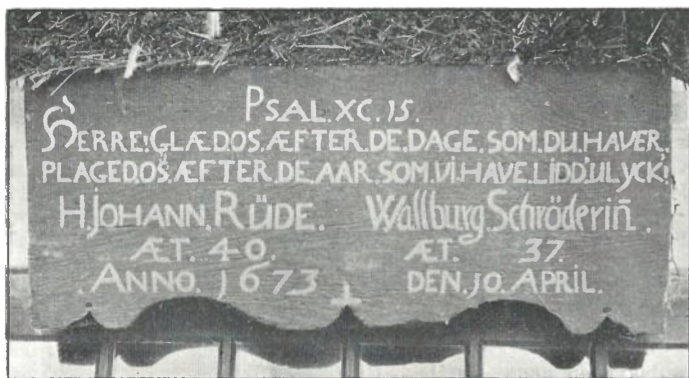 PSAL.XC.15.
HERRE!GLÆD.OS.ÆFTER.DE.DAGE.SOM.DU.HAVER.
PLAGED.OS.ÆFTER.DE.AAR.SOM.VI.HAVE.LIDD'ULYCK!
H.JOHANN.RÜDE. Wallburg.Schröderiñ.
ÆT. 40. ÆT. 37.
ANNO. 1673 DEN.10.APRIL.